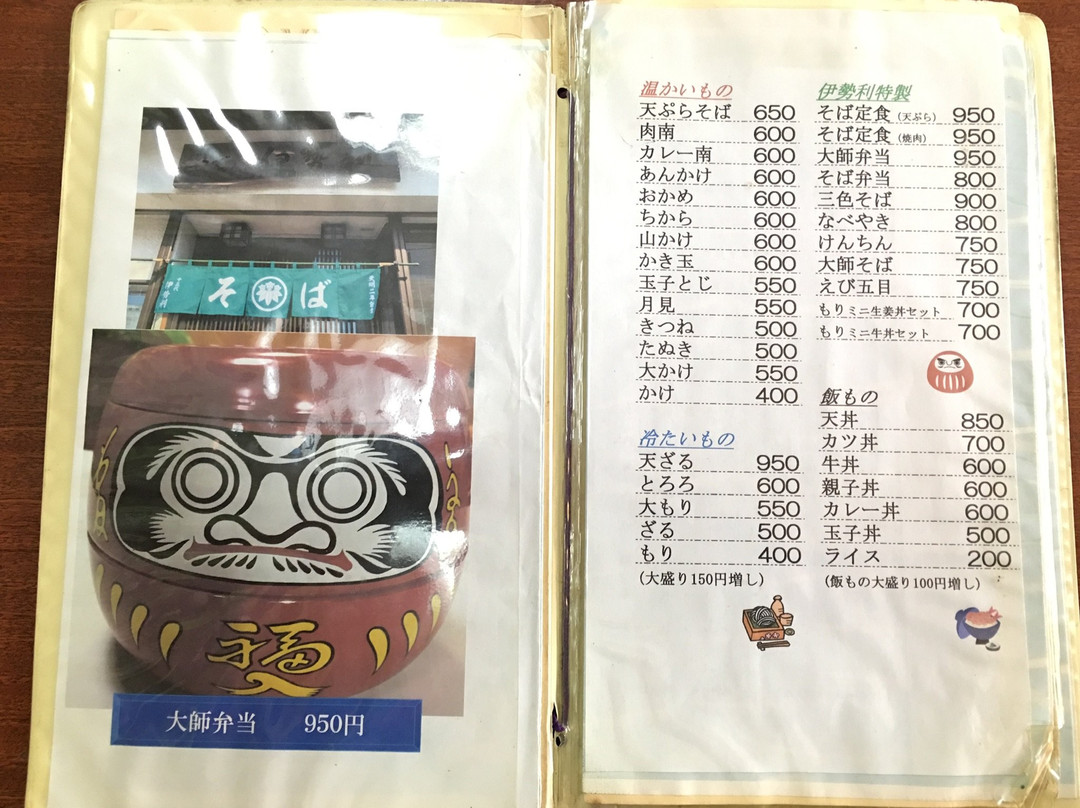 そ ば
伊勢利
福
大師弁当 950円
温かいもの
天ぷらそば 650
肉南 600
カレー南 600
あんかけ 600
おかめ 600
ちから 600
山かけ 600
かき玉 600
玉子とじ 550
月見 550
きつね 500
たぬき 500
大かけ 550
かけ 400
冷たいもの
天ざる 950
とろろ 600
大もり 550
ざる 500
もり 400
(大盛り150円増し)
伊勢利特製
そば定食(天ぷら) 950
そば定食(焼肉) 950
大師弁当 950
そば弁当 800
三色そば 900
なべやき 800
けんちん 750
大師そば 750
えび五目 750
もりミニ生姜丼セット 700
もりミニ牛丼セット 700
飯もの
天丼 850
カツ丼 700
牛丼 600
親子丼 600
カレー丼 600
玉子丼 500
ライス 200
(飯もの大盛り100円増し)